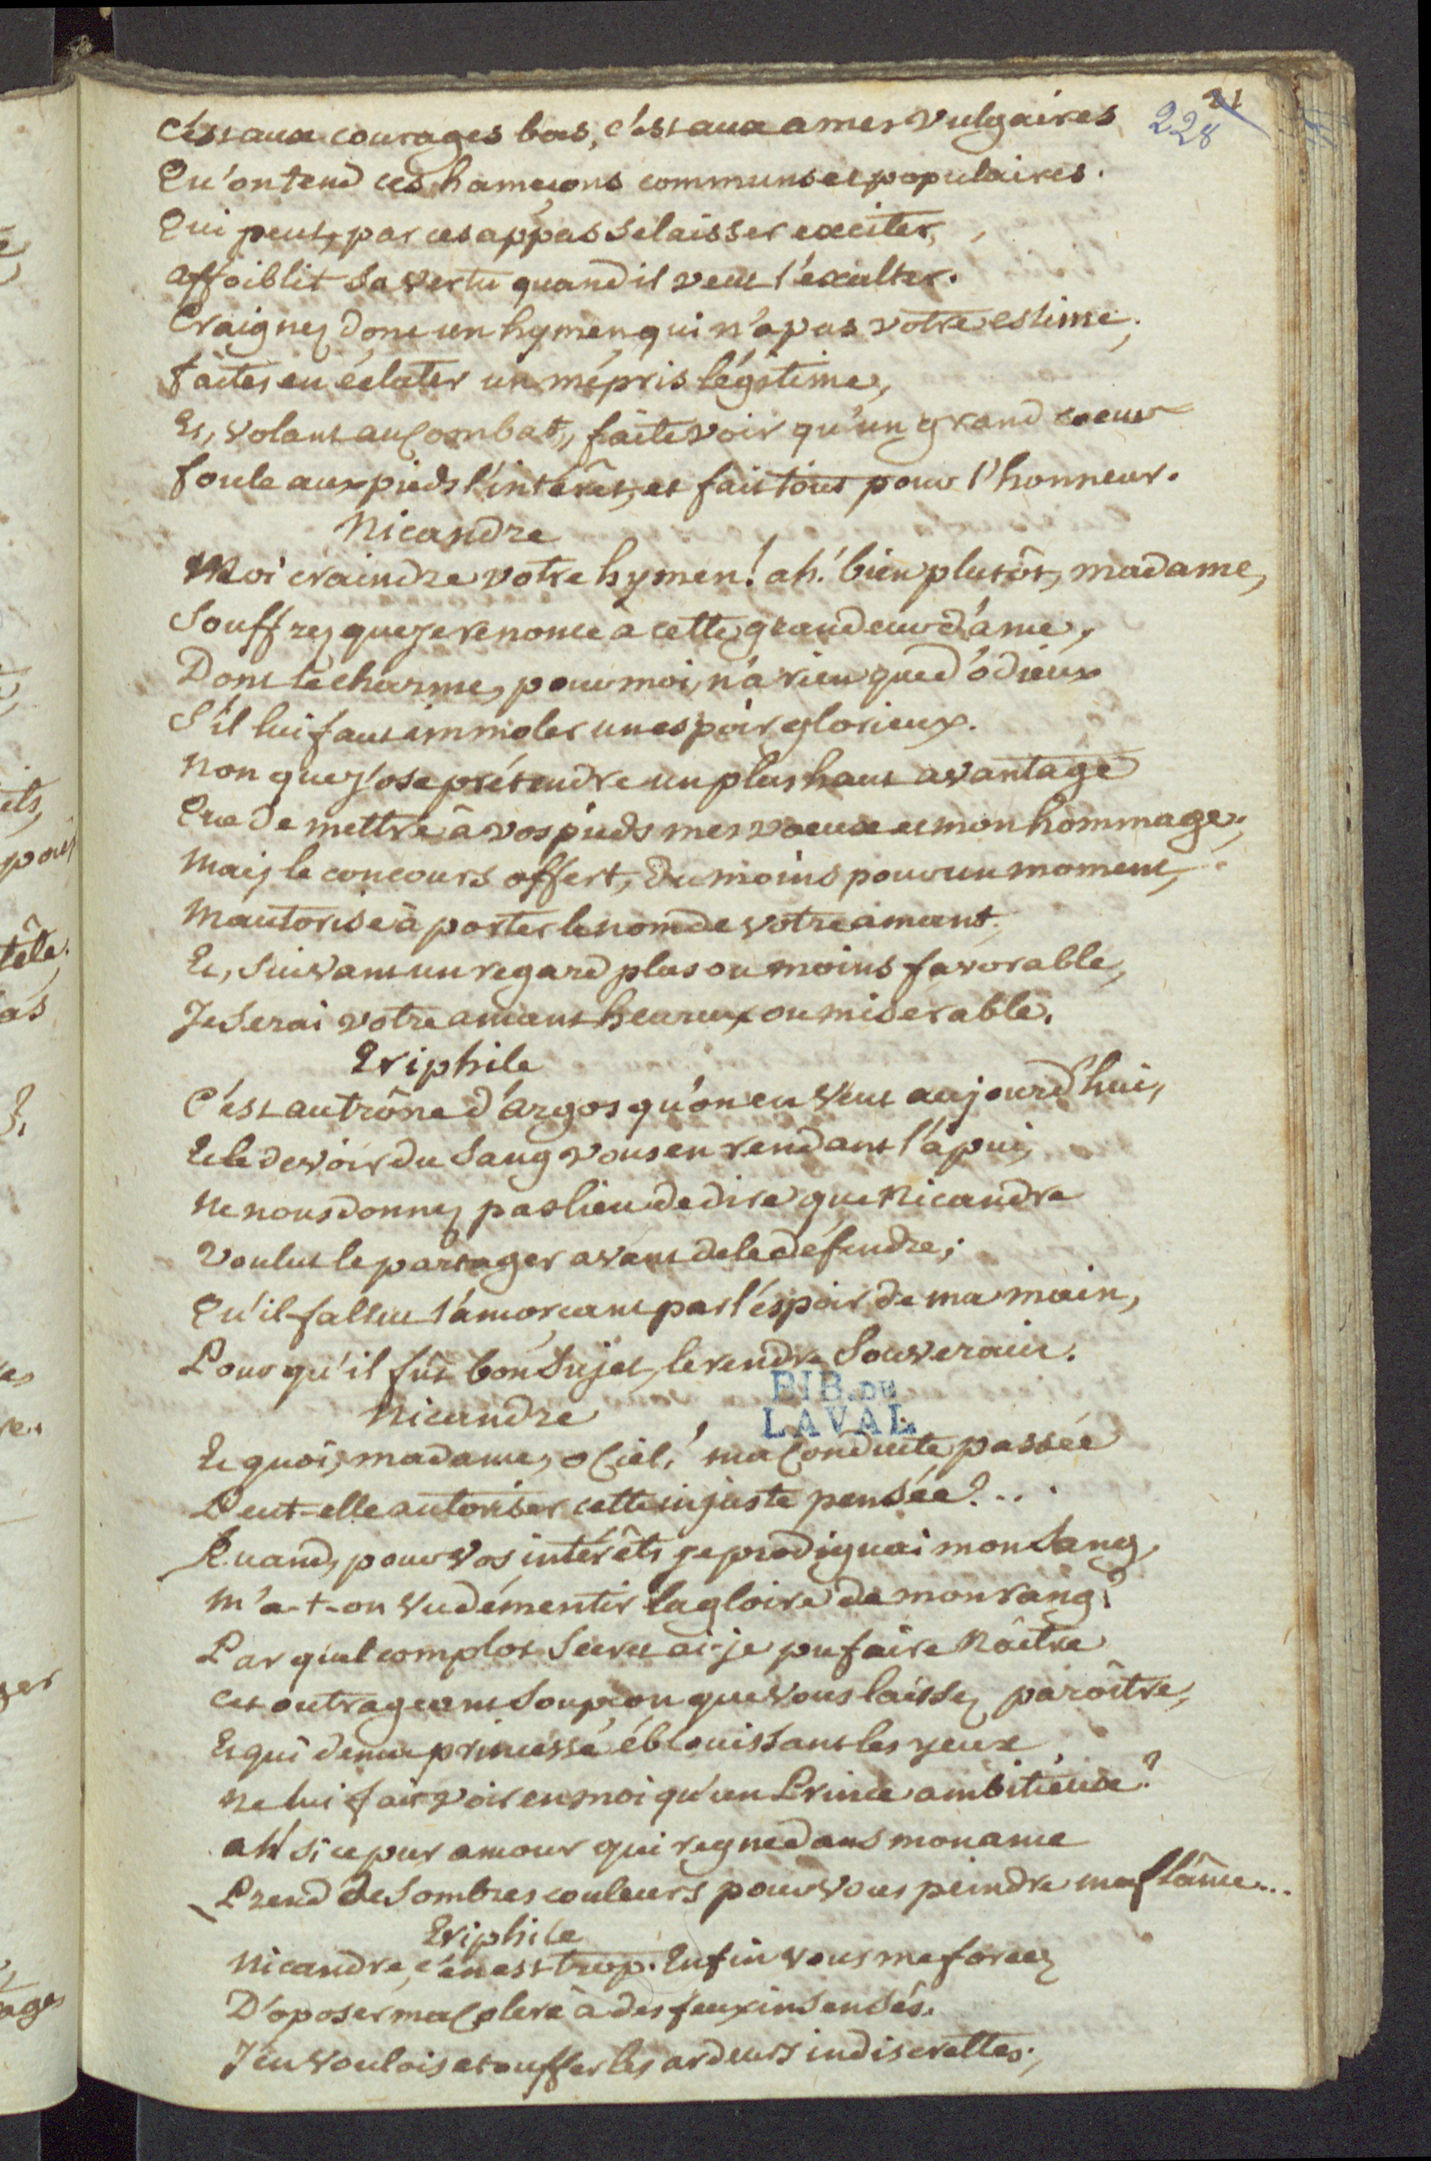 21
228
C'est aux courages bas, c'est aux ames vulgaires
Qu'on tend ces hameçons communs et populaires.
Qui peut, par ces appas se laisser exciter,
affoiblit sa vertu quand il veut l'exalter.
Craignez donc un hymen qui n'a pas votre estime;
faites en éclater un mépris légitime,
Et, volant au Combat, faite voir qu'un grand coeur
foule aux pieds l'intérêt, et fait tout pour l'honneur.
Nicandre
Moi craindre votre hymen! ah! bien plutôt, madame,
Souffrez que je renonce a cette grandeur d'ame,
Dont le charme, pour moi, n'a rien que d'odieux
S'il lui faut immoler un espoir glorieux.
Non que j'ose prétendre un plus haut avantage
Que de mettre à vos pieds mes voeux et mon hommage;
Mais le concours offert, du moins pour un moment,
M'autorise à porter le nom de votre amant.
Et, suivant un regard plus ou moins favorable,
Je serai votre amant heureux ou miserable.
Eriphile
C'est au trône d'Argos qu'on en veut aujourd'hui,
Et le devoir du sang vous en rendant l'apui,
Ne nous donnez pas lieu de dire que Nicandre
Voulut le partager avant de le défendre;
Qu'il fallut l'amorcant par l'éspoir de ma main,
Pour qu'il fut bon sujet, le rendre Souverain.
BIB. DU
LAVAL
Nicandre
Et quoi, madame, o Ciel! ma Conduite passée
Peut-elle autoriser cette injuste pensée?...
Quand, pour vos intérêts je prodiguai mon sang,
M'a-t-on vu démentir la gloire de mon rang?
Par quel complot secret ai-je pu faire Naître
Cet outrageant soupçon que vous laissez paroître,
Et qui d'une princesse éblouissant les yeux
Ne lui fait voir en moi qu'un Prince ambitieux?
ah! si ce pur amour qui regne dans mon ame
Prend de sombres couleurs pour vous peindre ma flâme...
Eriphile
Nicandre, c'en est trop. Enfin vous me forcez
D'oposer ma Colere à des feux insensés.
J'en voulois etouffer les ardeurs indiscrettes;